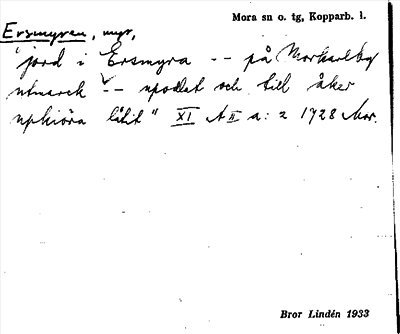 Mora sn o. tg, Kopparb. l.
Ersmyren, myr,
"jord i Ersmyra -- på Morkarlby
utmarck -- upodlat och till åker
uphiöra låtit" XI A II a: 2 1728 Mor.
Bror Lindén 1933